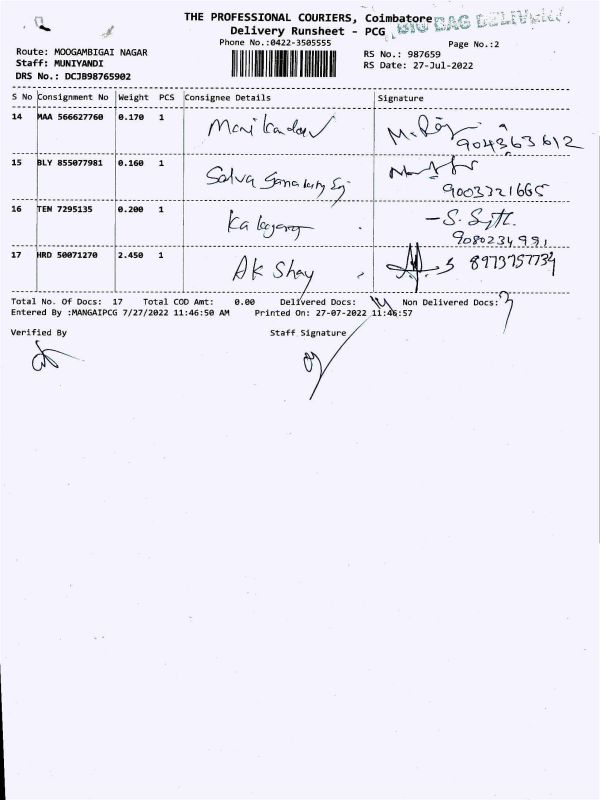 THE PROFESSIONAL COURIERS, Coimbatore
BIG BAG DELIVERY
Delivery Runsheet - PCG
Phone No.:0422-3505555
Page No.:2
Route: MOOGAMBIGAI NAGAR
RS No.: 987659
Staff: MUNIYANDI
RS Date: 27-Jul-2022
DRS No.: DCJB98765902
S No Consignment No Weight PCS Consignee Details Signature
14 MAA 566627760 0.170 1 Manikandan
904363612
15 BLY 855077981 0.160 1
9003321665
16 TEN 7295135 0.200 1
9080234991
17 HRD 50071270 2.450 1 Ak Shay 8973757734
Total No. Of Docs: 17 Total COD Amt: 0.00 Delivered Docs: 14 Non Delivered Docs: 3
Entered By :MANGAIPCG 7/27/2022 11:46:50 AM Printed On: 27-07-2022 11:46:57
Verified By Staff Signature